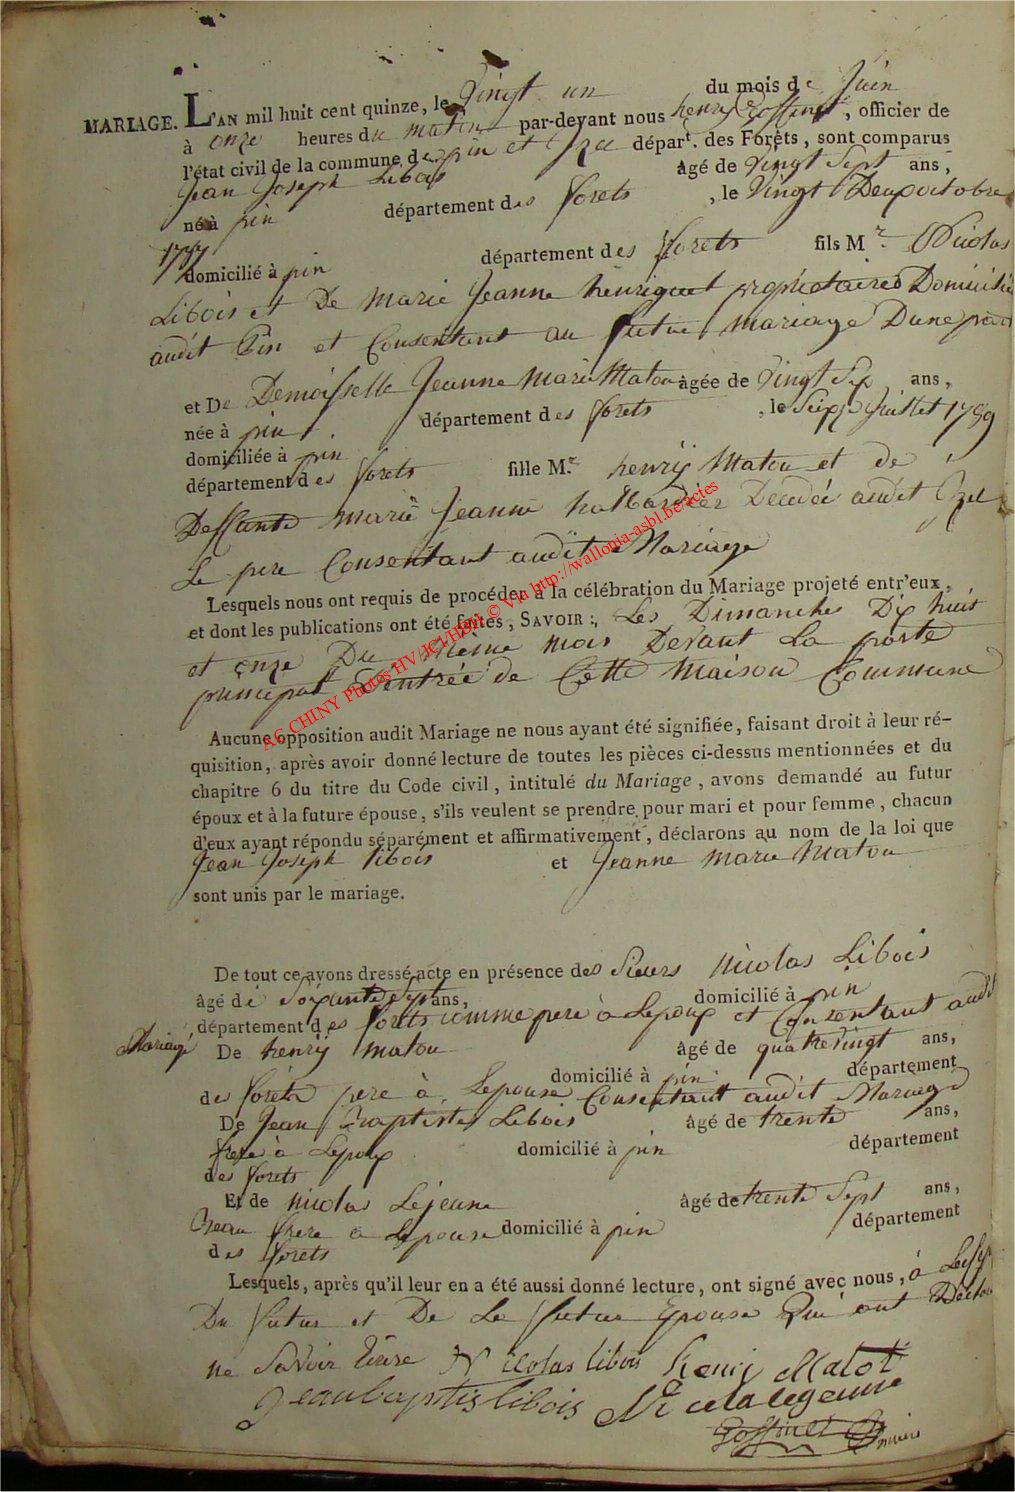 MARIAGE. L'AN mil huit cent quinze, le Vingt un du mois de Juin
à onze heures du matin par-devant nous henry Goffinet, officier de
l'état civil de la commune de pin et Izel départ. des Forêts, sont comparus
Jean Joseph Libois âgé de Vingt Sept ans,
né à pin département des forets, le Vingt Deux octobre
1787
domicilié à pin département des forets fils Mr Nicolas
Libois et De Marie Jeanne henriquet propriétaires Domiciliés
audit Pin et Consentant au futur mariage Dune part
et De Demoisselle Jeanne Marie Matou âgée de Vingt Six ans,
née à pin département des forets, le Juillet 1789
domiciliée à pin
département des forets fille Mr henrij Matou et de
Deffunte Marie Jeanne halbardier Décédée audit Izel
Le pere Consentant audit Mariage
Lesquels nous ont requis de procéder à la célébration du Mariage projeté entr'eux,
et dont les publications ont été faites, SAVOIR: Les Dimanches Dix huit
et onze Du même mois Devant La porte
principal D'entrée de Cette Maison Commune
AC CHINY Photos HV/JCl/HDH © Via http://wallonia-asbl.be/actes
Aucune opposition audit Mariage ne nous ayant été signifiée, faisant droit à leur ré-
quisition, après avoir donné lecture de toutes les pièces ci-dessus mentionnées et du
chapitre 6 du titre du Code civil, intitulé du Mariage, avons demandé au futur
époux et à la future épouse, s'ils veulent se prendre pour mari et pour femme, chacun
d'eux ayant répondu séparément et affirmativement, déclarons au nom de la loi que
Jean Joseph libois et Jeanne Marie Matou
sont unis par le mariage.
De tout ce avons dressé acte en présence des Sieurs Nicolas Libois
âgé de Soixante Sept ans, domicilié à pin
département des forets comme pere à Lepoux et Consentant audit
Mariage De henrij matou âgé de quatre vingt ans,
domicilié à pin département
des forêts pere à Lepouse Consentant audit Mariage
De Jean Baptiste Libois âgé de trente ans,
frere à Lepoux domicilié à pin département
des forets
Et de Nicolas Lejeune âgé de trente Sept ans,
Beau frere a Lepouse domicilié à pin département
des forets
Lesquels, après qu'il leur en a été aussi donné lecture, ont signé avec nous, à
Du futur et De La future Epouse Qui ont
ne Savoir Ecrire Nicolas libois henrij Matot
Jeanbaptis libois Nicola legeune
Goffinet